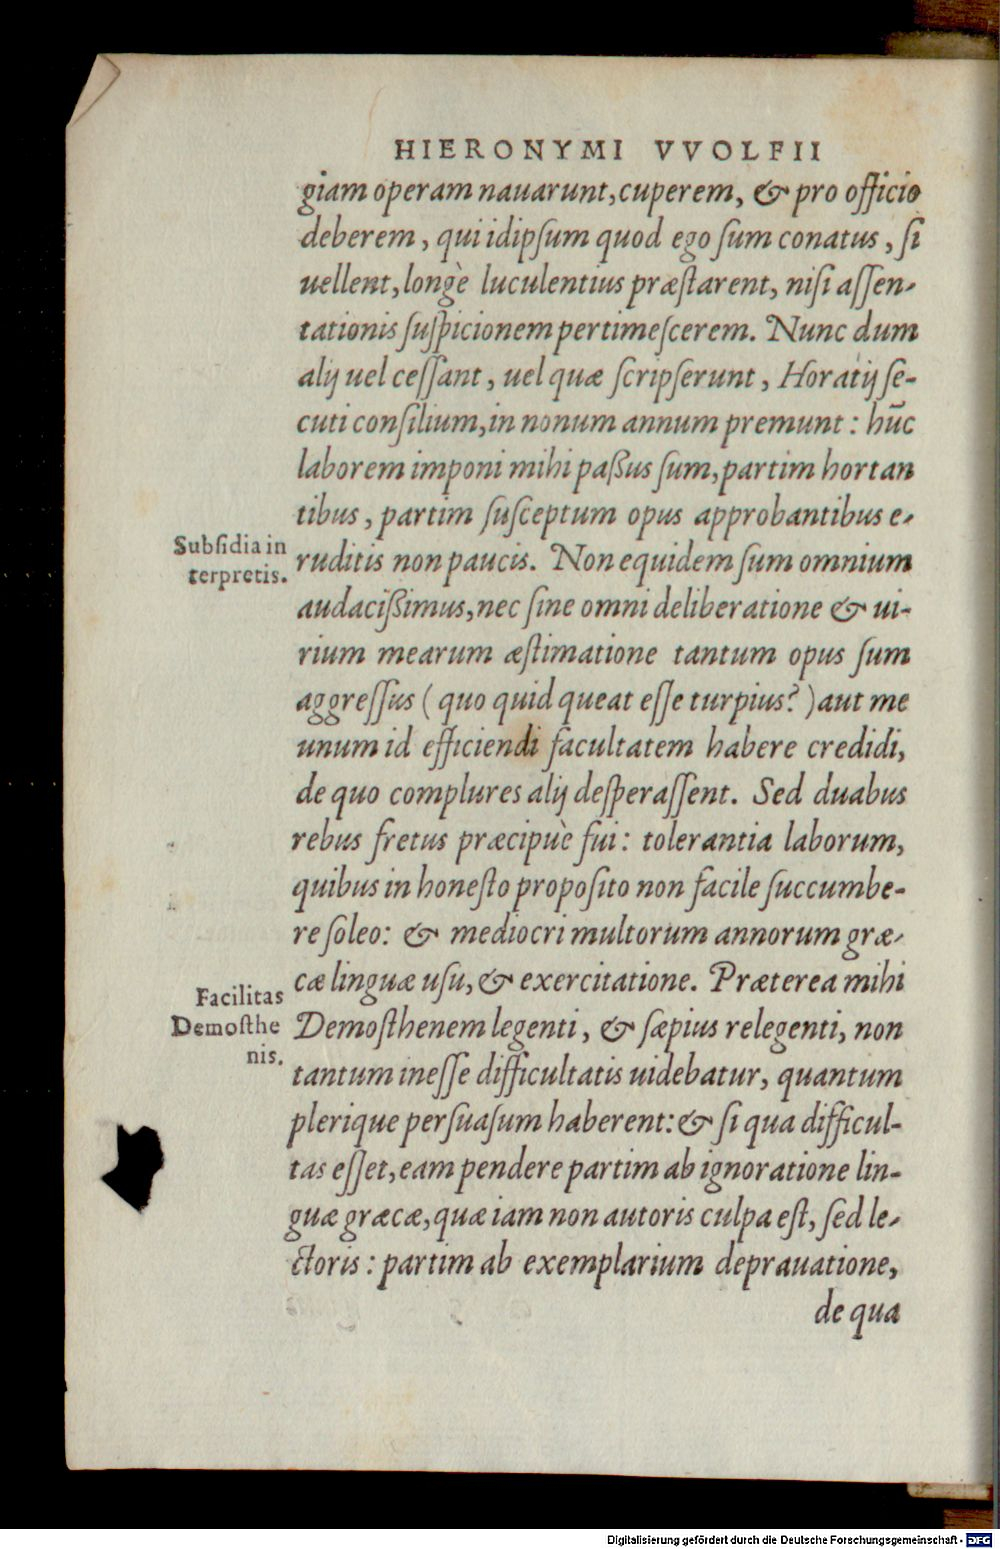 HIERONYMI VVOLFII
giam operam nauarunt, cuperem, & pro officio
deberem, qui idipſum quod ego ſum conatus, ſi
uellent, longè luculentius præſtarent, niſi aſſen-
tationis ſuſpicionem pertimeſcerem. Nunc dum
alij uel ceſſant, uel quæ ſcripſerunt, Horatij ſe-
cuti conſilium, in nonum annum premunt: hūc
laborem imponi mihi paßus ſum, partim hortan
tibus, partim ſuſceptum opus approbantibus e-
Subſidia in
terpretis.
ruditis non paucis. Non equidem ſum omnium
audacißimus, nec ſine omni deliberatione & ui-
rium mearum æſtimatione tantum opus ſum
aggreſſus (quo quid queat eſſe turpius?) aut me
unum id efficiendi facultatem habere credidi,
de quo complures alij deſperaſſent. Sed duabus
rebus fretus præcipuè fui: tolerantia laborum,
quibus in honeſto propoſito non facile ſuccumbe-
re ſoleo: & mediocri multorum annorum græ-
cæ linguæ uſu, & exercitatione. Præterea mihi
Facilitas
Demoſthe
nis.
Demoſthenem legenti, & ſæpius relegenti, non
tantum ineſſe difficultatis uidebatur, quantum
plerique perſuaſum haberent: & ſi qua difficul-
tas eſſet, eam pendere partim ab ignoratione lin-
guæ græcæ, quæ iam non autoris culpa eſt, ſed le-
ctoris: partim ab exemplarium deprauatione,
de qua
Digitalisierung gefördert durch die Deutsche Forschungsgemeinschaft - DFG